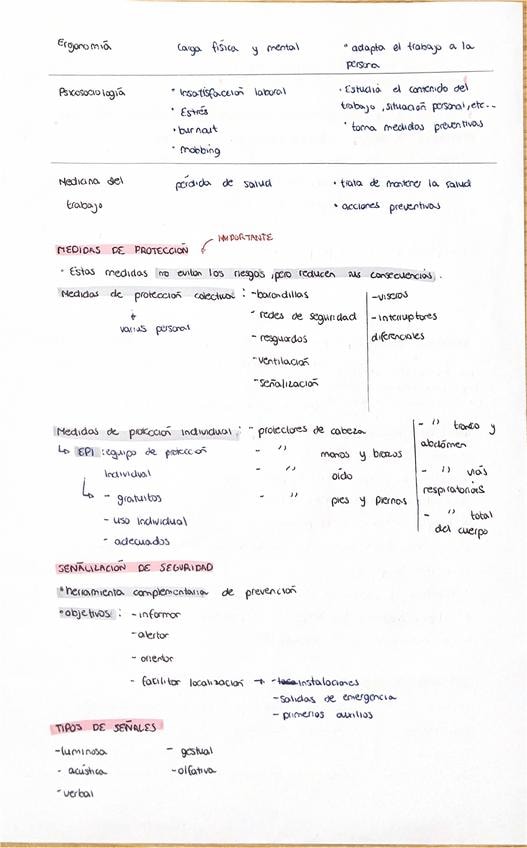 Ergonomía carga física y mental · adapta el trabajo a la
persona
Psicosociología · Insatisfacción laboral · Estudia el contenido del
· Estrés trabajo, situación personal, etc...
· burnout · toma medidas preventivas
· mobbing
Medicina del pérdida de salud · trata de mantener la salud
trabajo · acciones preventivas
MEDIDAS DE PROTECCIÓN IMPORTANTE
· Estas medidas no evitan los riesgos, pero reducen sus consecuencias.
Medidas de protección colectiva: - barandillas - viseras
varias personas - redes de seguridad - interruptores
- resguardos diferenciales
- ventilación
- señalización
Medidas de protección individual: - protectores de cabeza - '' tronco y
↳ EPI: equipo de protección - '' manos y brazos abdómen
individual - '' oído - '' vías
↳ - gratuitos - '' pies y piernas respiratorias
- uso individual - '' total
- adecuados del cuerpo
SEÑALIZACIÓN DE SEGURIDAD
· herramienta complementaria de prevención
· objetivos: - informar
- alertar
- orientar
- facilitar localización → - instalaciones
- salidas de emergencia
- primeros auxilios
TIPOS DE SEÑALES
- luminosa - gestual
- acústica - olfativa
- verbal